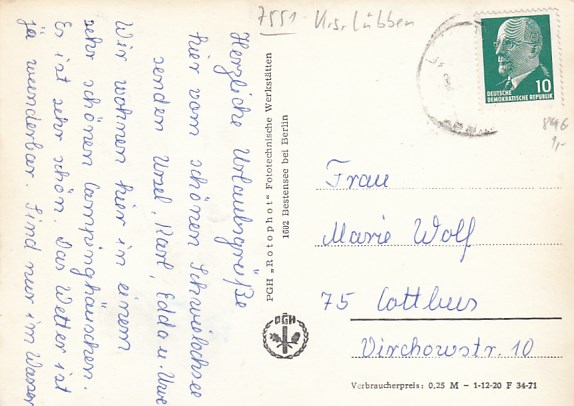 7551 Krs. Lübben
Herzliche Urlaubsgrüße
hier vom schönen Schwielochsee
senden Ursel, Karl, Edda u. Uwe
Wir wohnen hier in einem
sehr schönen Campinghäuschen.
Es ist sehr schön. Das Wetter ist
ja wunderbar. Sind nur im Wasser
PGH „Rotophot" Fototechnische Werkstätten
1602 Bestensee bei Berlin
10
DEUTSCHE
DEMOKRATISCHE REPUBLIK
1,-
Frau
Marie Wolf
75 Cottbus
Virchowstr. 10
PGH
Verbraucherpreis: 0,25 M - 1-12-20 F 34-71